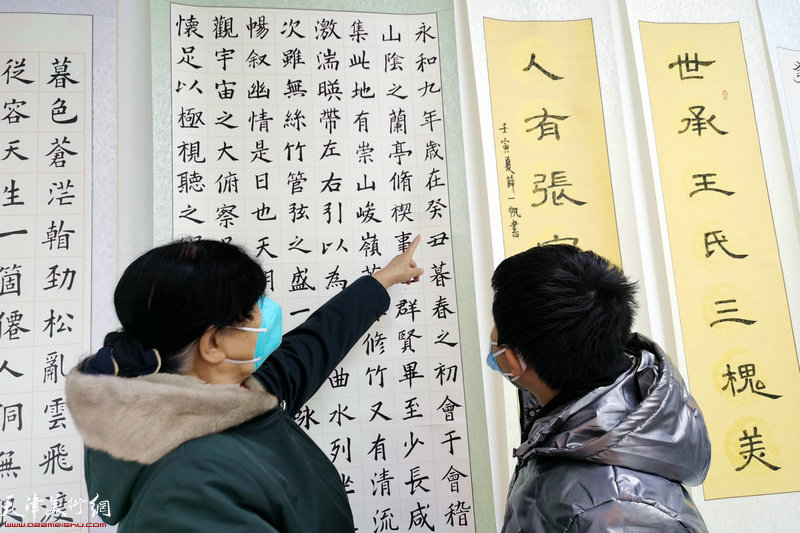 世承王氏三槐美
人有張
壬寅夏薛一帆書
永和九年歲在癸丑暮春之初會于會稽
山陰之蘭亭脩禊事群賢畢至少長咸
集此地有崇山峻嶺修竹又有清流
激湍暎帶左右引以為曲水列坐
次雖無絲竹管弦之盛一詠
暢叙幽情是日也天朗
觀宇宙之大俯察
懷足以極視聽之
暮色蒼茫看勁松亂雲飛渡
從容天生一箇僊人洞無
天津美术网
www.022meishu.com